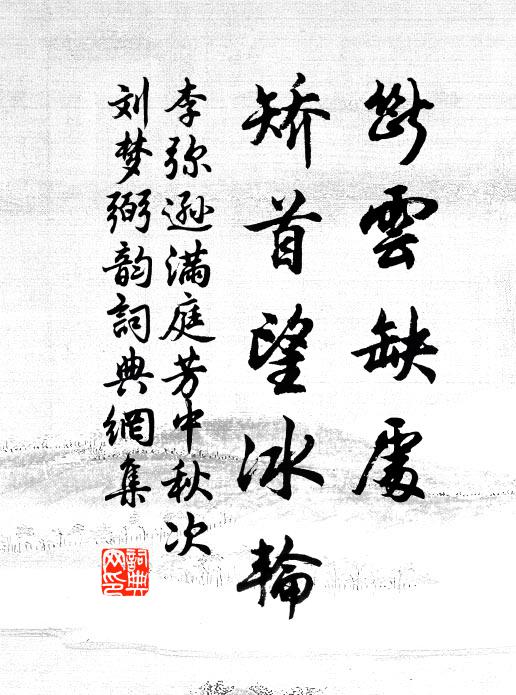 断雲缺處
矫首望冰輪
李弥遜满庭芳中秋次
刘梦弼韵詞典網集
詞典网印